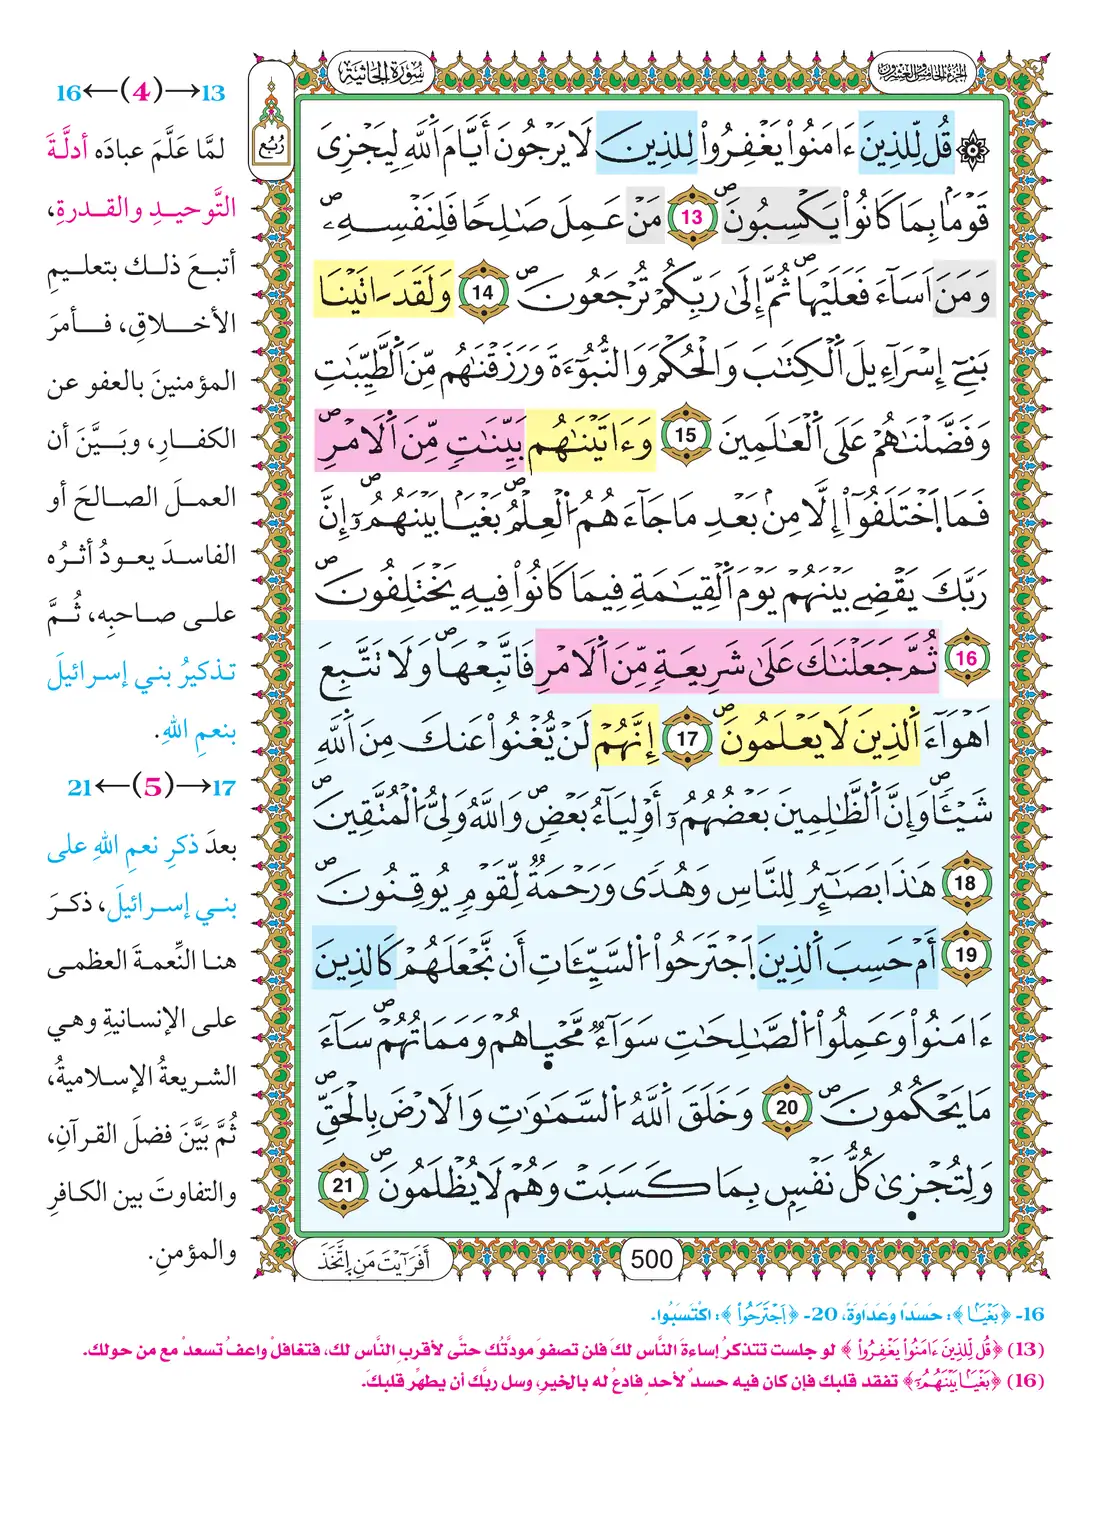 الجزء الخامس والعشرون
سورة الجاثية
رُبُع
۞ قُل لِّلَّذِينَ ءَامَنُواْ يَغْفِرُواْ لِلذِينَ لَا يَرْجُونَ أَيَّامَ اَ۬للَّهِ لِيَجْزِىَ
قَوْماَۢ بِمَا كَانُواْ يَكْسِبُونَۖ 13 مَنْ عَمِلَ صَٰلِحاٗ فَلِنَفْسِهِۦۖ
وَمَنَ اَسَآءَ فَعَلَيْهَاۖ ثُمَّ إِلَىٰ رَبِّكُمْ تُرْجَعُونَۖ 14 وَلَقَدَ اٰتَيْنَا
بَنِےٓ إِسْرَآءِيلَ اَ۬لْكِتَٰبَ وَالْحُكْمَ وَالنُّبُوٓءَةَ وَرَزَقْنَٰهُم مِّنَ اَ۬لطَّيِّبَٰتِ
وَفَضَّلْنَٰهُمْ عَلَى اَ۬لْعَٰلَمِينَ 15 وَءَاتَيْنَٰهُم بَيِّنَٰتٖ مِّنَ اَ۬لَامْرِۖ
فَمَا اَ۪خْتَلَفُوٓاْ إِلَّا مِنۢ بَعْدِ مَا جَآءَهُمُ اُ۬لْعِلْمُۖ بَغْياَۢ بَيْنَهُمُۥٓۖ إِنَّ
رَبَّكَ يَقْضِے بَيْنَهُمْ يَوْمَ اَ۬لْقِيَٰمَةِ فِيمَا كَانُواْ فِيهِ يَخْتَلِفُونَۖ
16 ثُمَّ جَعَلْنَٰكَ عَلَىٰ شَرِيعَةٖ مِّنَ اَ۬لَامْرِ فَاتَّبِعْهَاۖ وَلَا تَتَّبِعَ
اَهْوَآءَ اَ۬لذِينَ لَا يَعْلَمُونَۖ 17 إِنَّهُمْ لَنْ يُّغْنُواْ عَنكَ مِنَ اَ۬للَّهِ
شَيْـٔاٗۖ وَإِنَّ اَ۬لظَّٰلِمِينَ بَعْضُهُمُۥٓ أَوْلِيَآءُ بَعْضٖۖ وَاللَّهُ وَلِىُّ اُ۬لْمُتَّقِينَۖ
18 هَٰذَا بَصَٰٓئِرُ لِلنَّاسِ وَهُدىٗ وَرَحْمَةٞ لِّقَوْمٖ يُوقِنُونَۖ
19 أَمْ حَسِبَ اَ۬لذِينَ اَ۪جْتَرَحُواْ اُ۬لسَّيِّـَٔاتِ أَن نَّجْعَلَهُمْ كَالذِينَ
ءَامَنُواْ وَعَمِلُواْ اُ۬لصَّٰلِحَٰتِ سَوَآءٞ مَّحْيٜاهُمْ وَمَمَاتُهُمْۖ سَآءَ
مَا يَحْكُمُونَۖ 20 وَخَلَقَ اَ۬للَّهُ اُ۬لسَّمَٰوَٰتِ وَالَارْضَ بِالْحَقِّۖ
وَلِتُجْزٜىٰ كُلُّ نَفْسِۢ بِمَا كَسَبَتْ وَهُمْ لَا يُظْلَمُونَۖ 21
أَفَرَٰٓيْتَ مَنِ اِ۪تَّخَذَ
500
13→(4)←16
لمَّا عَلَّمَ عبادَه أدلَّةَ
التَّوحيدِ والقدرةِ،
أتبعَ ذلك بتعليمِ
الأخلاقِ، فأمرَ
المؤمنينَ بالعفو عن
الكفارِ، وبَيَّنَ أن
العملَ الصالحَ أو
الفاسدَ يعودُ أثرُه
على صاحبِه، ثُمَّ
تذكيرُ بني إسرائيلَ
بنعمِ اللهِ.
17→(5)←21
بعدَ ذكرِ نعمِ اللهِ على
بني إسرائيلَ، ذكرَ
هنا النِّعمةَ العظمى
على الإنسانيةِ وهي
الشريعةُ الإسلاميةُ،
ثُمَّ بَيَّنَ فضلَ القرآنِ،
والتفاوتَ بين الكافرِ
والمؤمنِ.
16- ﴿بَغْيَاۢ﴾: حَسَدًا وَعَدَاوَةً، 20- ﴿اِجْتَرَحُواْ﴾: اكْتَسَبُوا.
(13) ﴿قُل لِّلَّذِينَ ءَامَنُواْ يَغْفِرُواْ﴾ لو جلست تتذكرُ إساءةَ النَّاس لكَ فلن تصفوَ مودتُكَ حتَّى لأقربِ النَّاس لك، فتغافلْ واعفُ تسعدْ مع من حولك.
(16) ﴿بَغْيَاۢ بَيْنَهُمُۥٓ﴾ تفقد قلبك فإن كان فيه حسدٌ لأحدٍ فادعُ له بالخيرِ، وسل ربَّك أن يطهِّر قلبكَ.